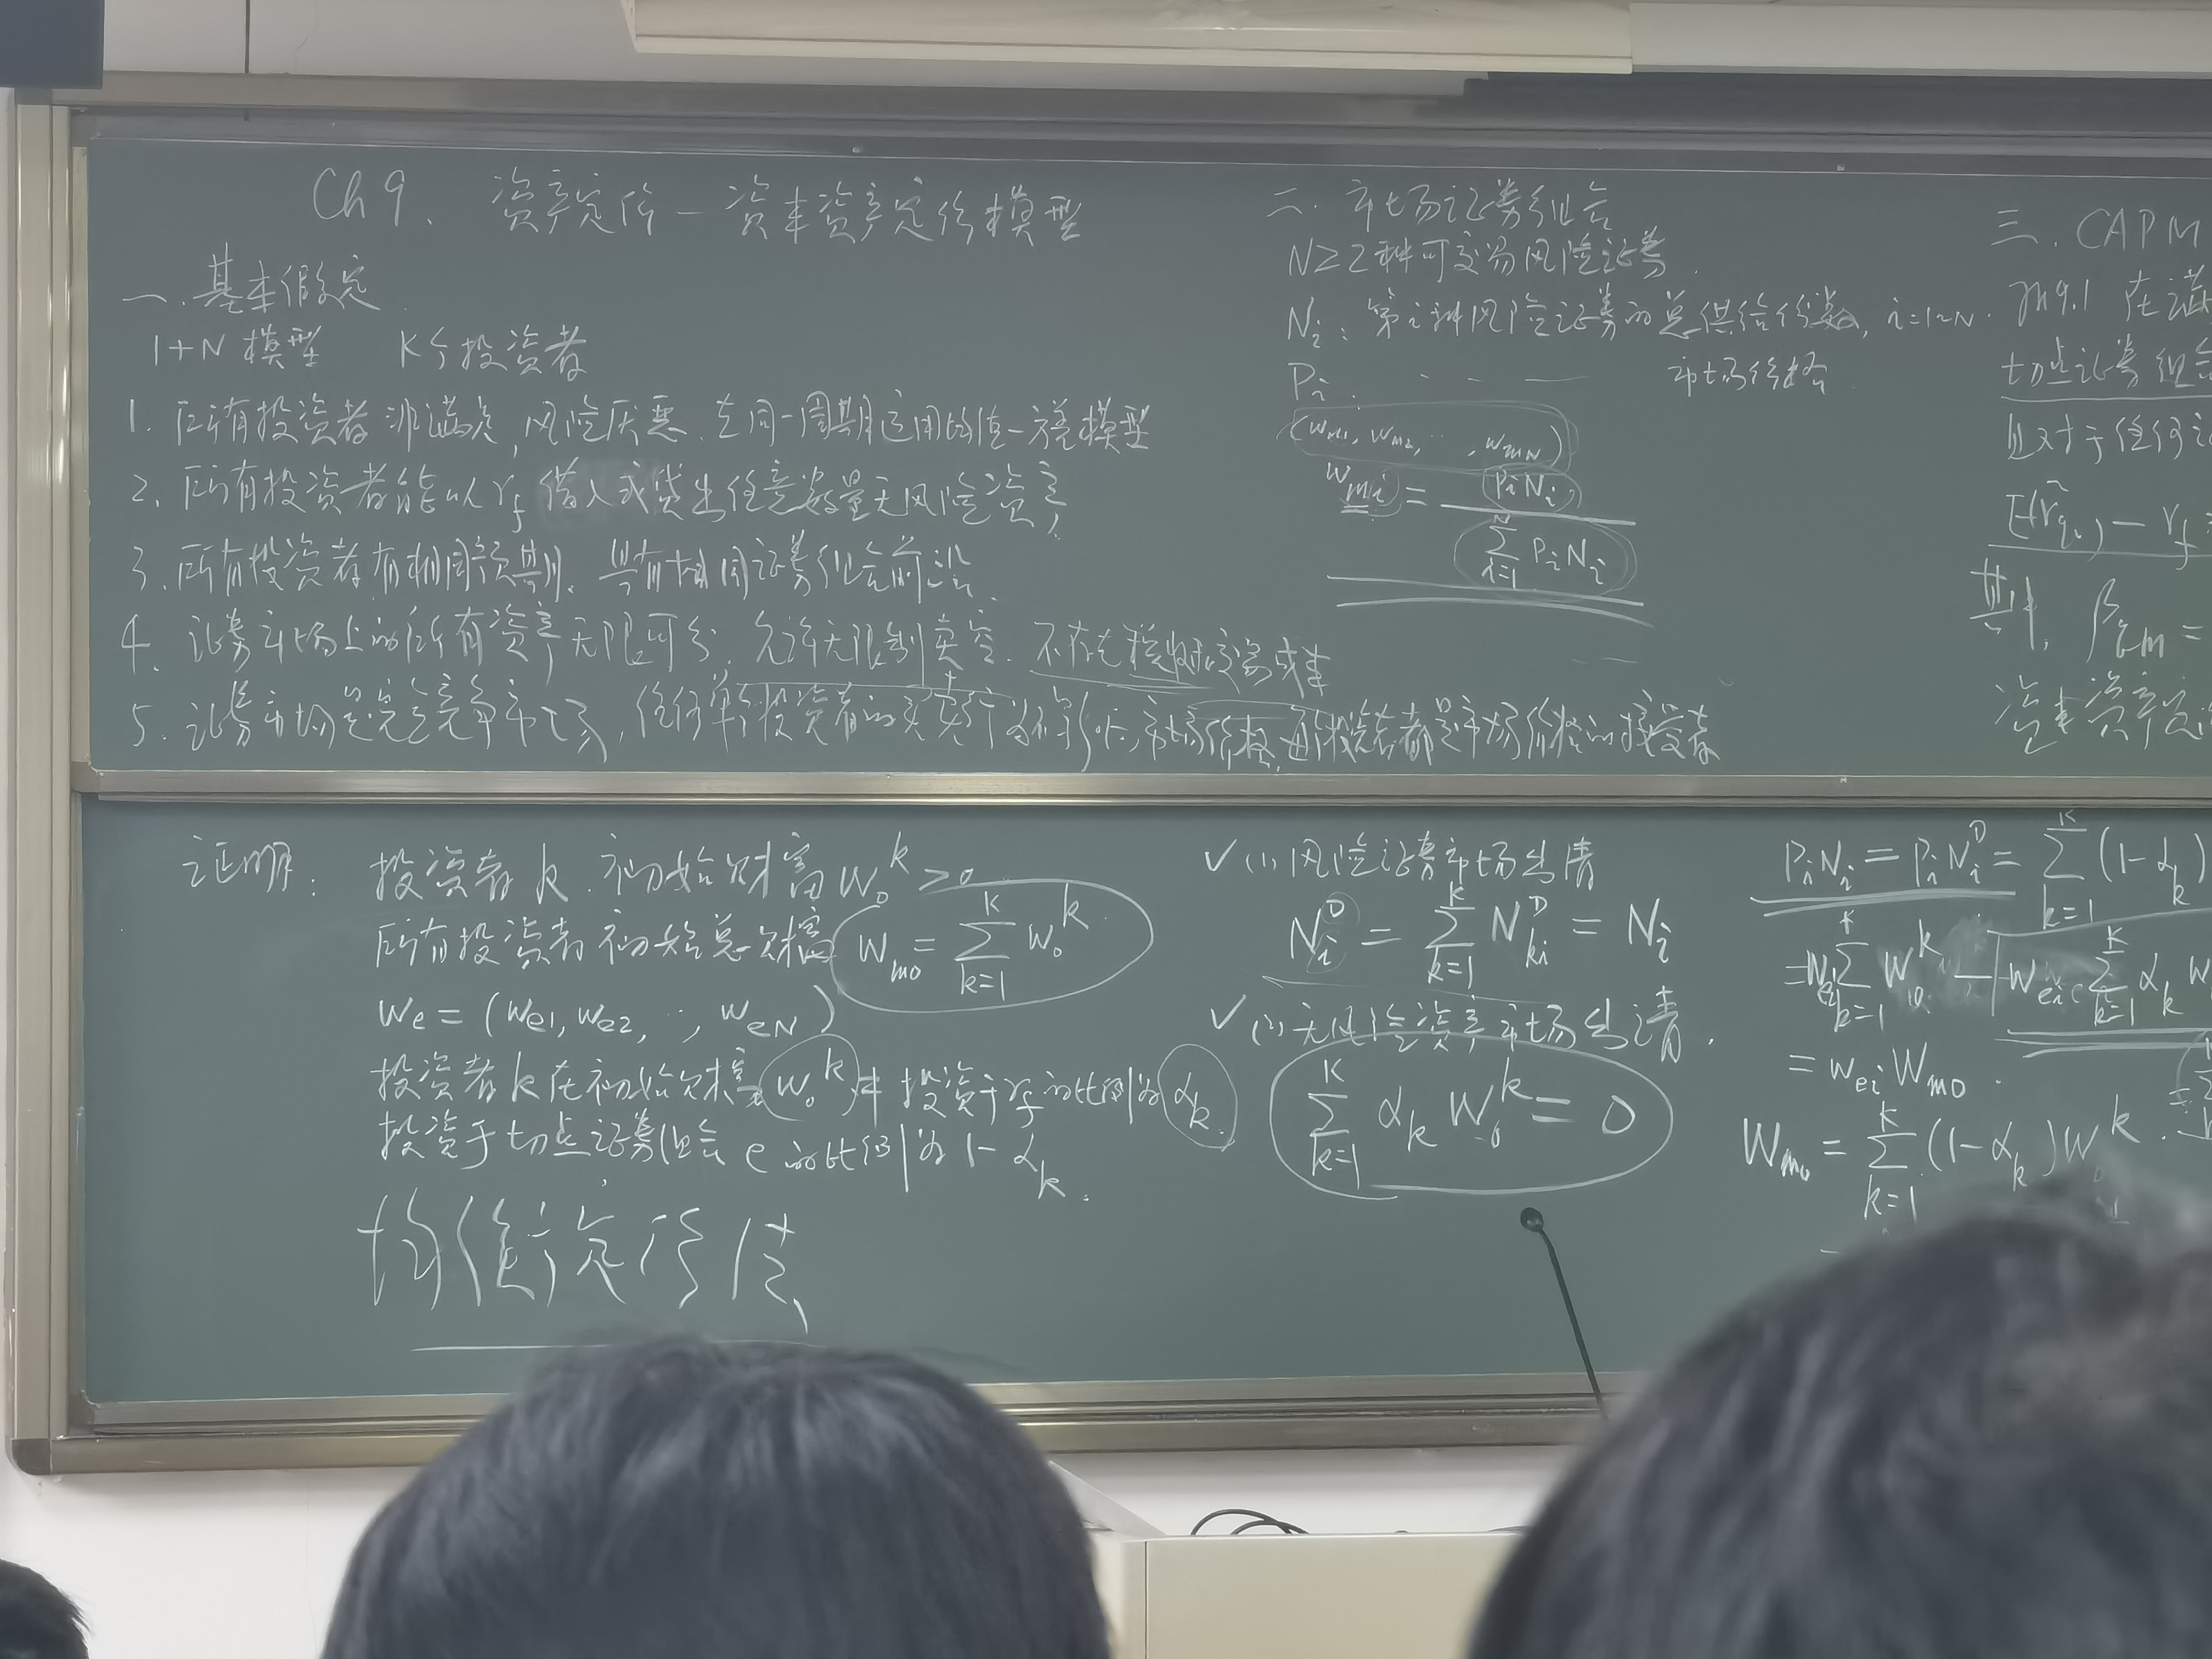 Ch 9. 资产定价 — 资本资产定价模型
一. 基本假定
1+N 模型 K个投资者
1. 所有投资者非满足, 风险厌恶, 在同一周期运用均值—方差模型
2. 所有投资者能以 r_f 借入或贷出任意数量无风险资产;
3. 所有投资者有相同预期. 具有相同证券组合前沿
4. 证券市场上的所有资产无限可分, 允许无限制卖空. 不存在税收和交易成本
5. 证券市场是完全竞争市场, 任何单个投资者的买卖行为不影响市场价格, 投资者都是市场价格的接受者
二. 市场证券组合
N≥2种可交易风险证券.
N_i: 第i种风险证券的总供给份数, i=1~N.
P_i: - - — 市场价格
(w_{m1}, w_{m2}, ⋯, w_{mN})
w_{mi} = P_i N_i / \sum_{i=1}^{N} P_i N_i
三. CAPM
Th 9.1 在
切点证券组合
则对于任何
E(r̃_q) − r_f
其中, β_{qm} =
资本资产定
证明: 投资者 k. 初始财富 W_0^k > 0
所有投资者初始总财富 W_{m0} = \sum_{k=1}^{K} W_0^k
w_e = (w_{e1}, w_{e2}, ⋯, w_{eN})
投资者k在初始财富 W_0^k 中投资于 r_f 的比例为 α_k.
投资于切点证券组合 e 的比例为 1−α_k.
√ (1) 风险证券市场出清
N_i^D = \sum_{k=1}^{K} N_{ki}^D = N_i
√ (2) 无风险资产市场出清.
\sum_{k=1}^{K} α_k W_0^k = 0
P_i N_i = P_i N_i^D = \sum_{k=1}^{K} (1−α_k)
= w_{ei} \sum_{k=1}^{K} W_0^k − w_{ei} \sum_{k=1}^{K} α_k W
= w_{ei} W_{m0}.
W_{m0} = \sum_{k=1}^{K} (1−α_k) W_0^k.